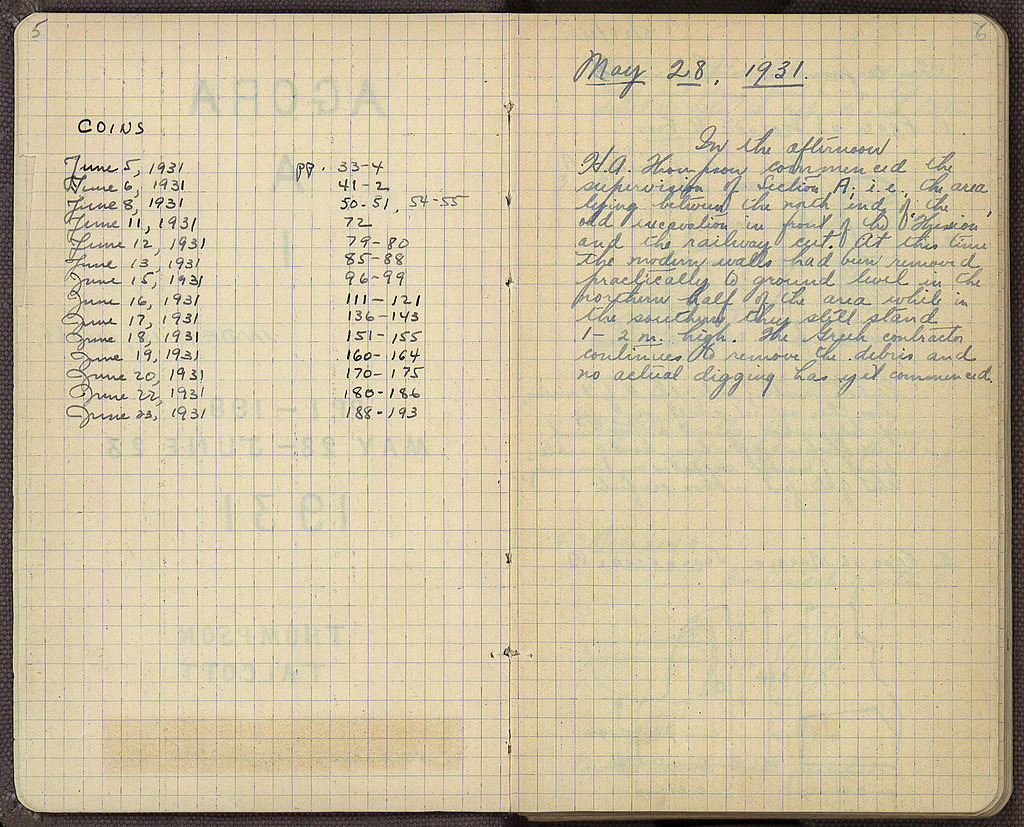 5
COINS
June 5, 1931 pp. 33-4
June 6, 1931 41-2
June 8, 1931 50-51, 54-55
June 11, 1931 72
June 12, 1931 79-80
June 13, 1931 85-88
June 15, 1931 96-99
June 16, 1931 111-121
June 17, 1931 136-143
June 18, 1931 151-155
June 19, 1931 160-164
June 20, 1931 170-175
June 22, 1931 180-186
June 23, 1931 188-193
6
May 28, 1931.
In the afternoon
H.A. Thompson commenced the
supervision of Section A, i.e. the area
lying between the north end of the
old excavation in front of the
and the railway cut. At this time
the modern walls had been removed
practically to ground level in the
northern half of the area while in
the southern they still stand
1-2 m. high. The Greek contractor
continues to remove the debris and
no actual digging has yet commenced.